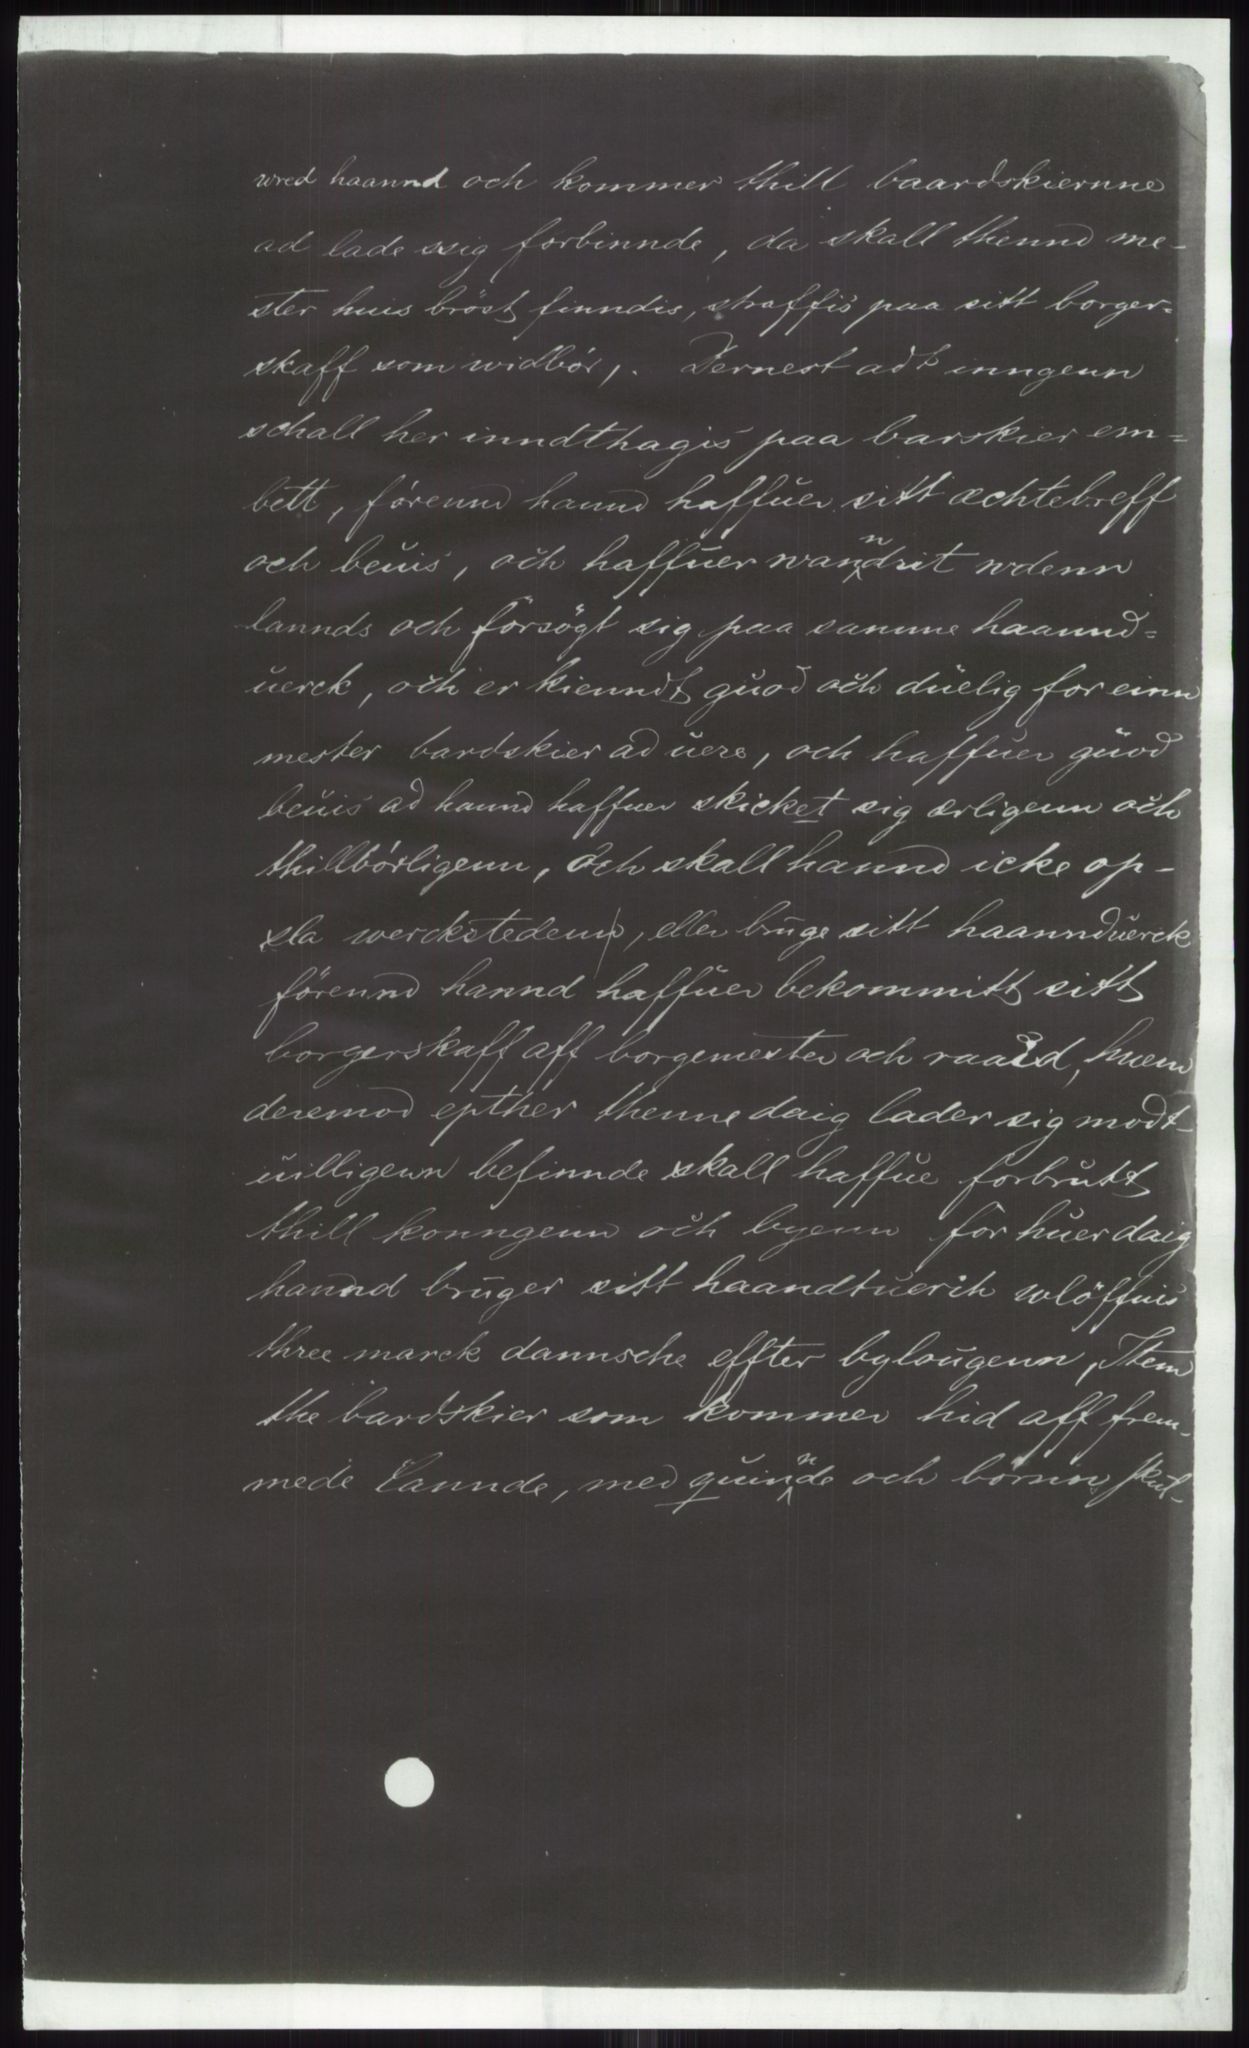 wred haannd och kommer thill baardskiernne
ad lade ssig forbinnde, da skall thennd me-
ster huis bröst finndis, straffis paa sitt borger=
skaff som widbör,. Dernest adt inngenn
schall her inndthagis paa barskier em=
bett, förennd hannd haffuer sitt æchtebreff
och beuis, och haffuer wanndrit wdenn
lannds och försögt sig paa samme haannd=
uerck, och er kienndt guod och düelig for einn
mester bardskier ad uere, och haffuer guod
beuis ad hannd haffuer skicket sig ærligenn och
thillbörligenn, Och skall hannd icke op-
sla werckstedenn, eller bruge sitt haannduerck
förennd hannd haffuer bekommitt sitt
borgerskaff aff borgemester och raaid, huem
deremod epther thenne daig lader sig modt-
uilligenn befinnde skall haffue forbrutt
thill konngenn och byenn for huer daig
hannd bruger sitt haandtuerch wlöffuis
three marck dannsche effter bylougenn, Item
the bardskier som kommer hid aff frem-
mede Lannde, med quinnde och börnn skul-